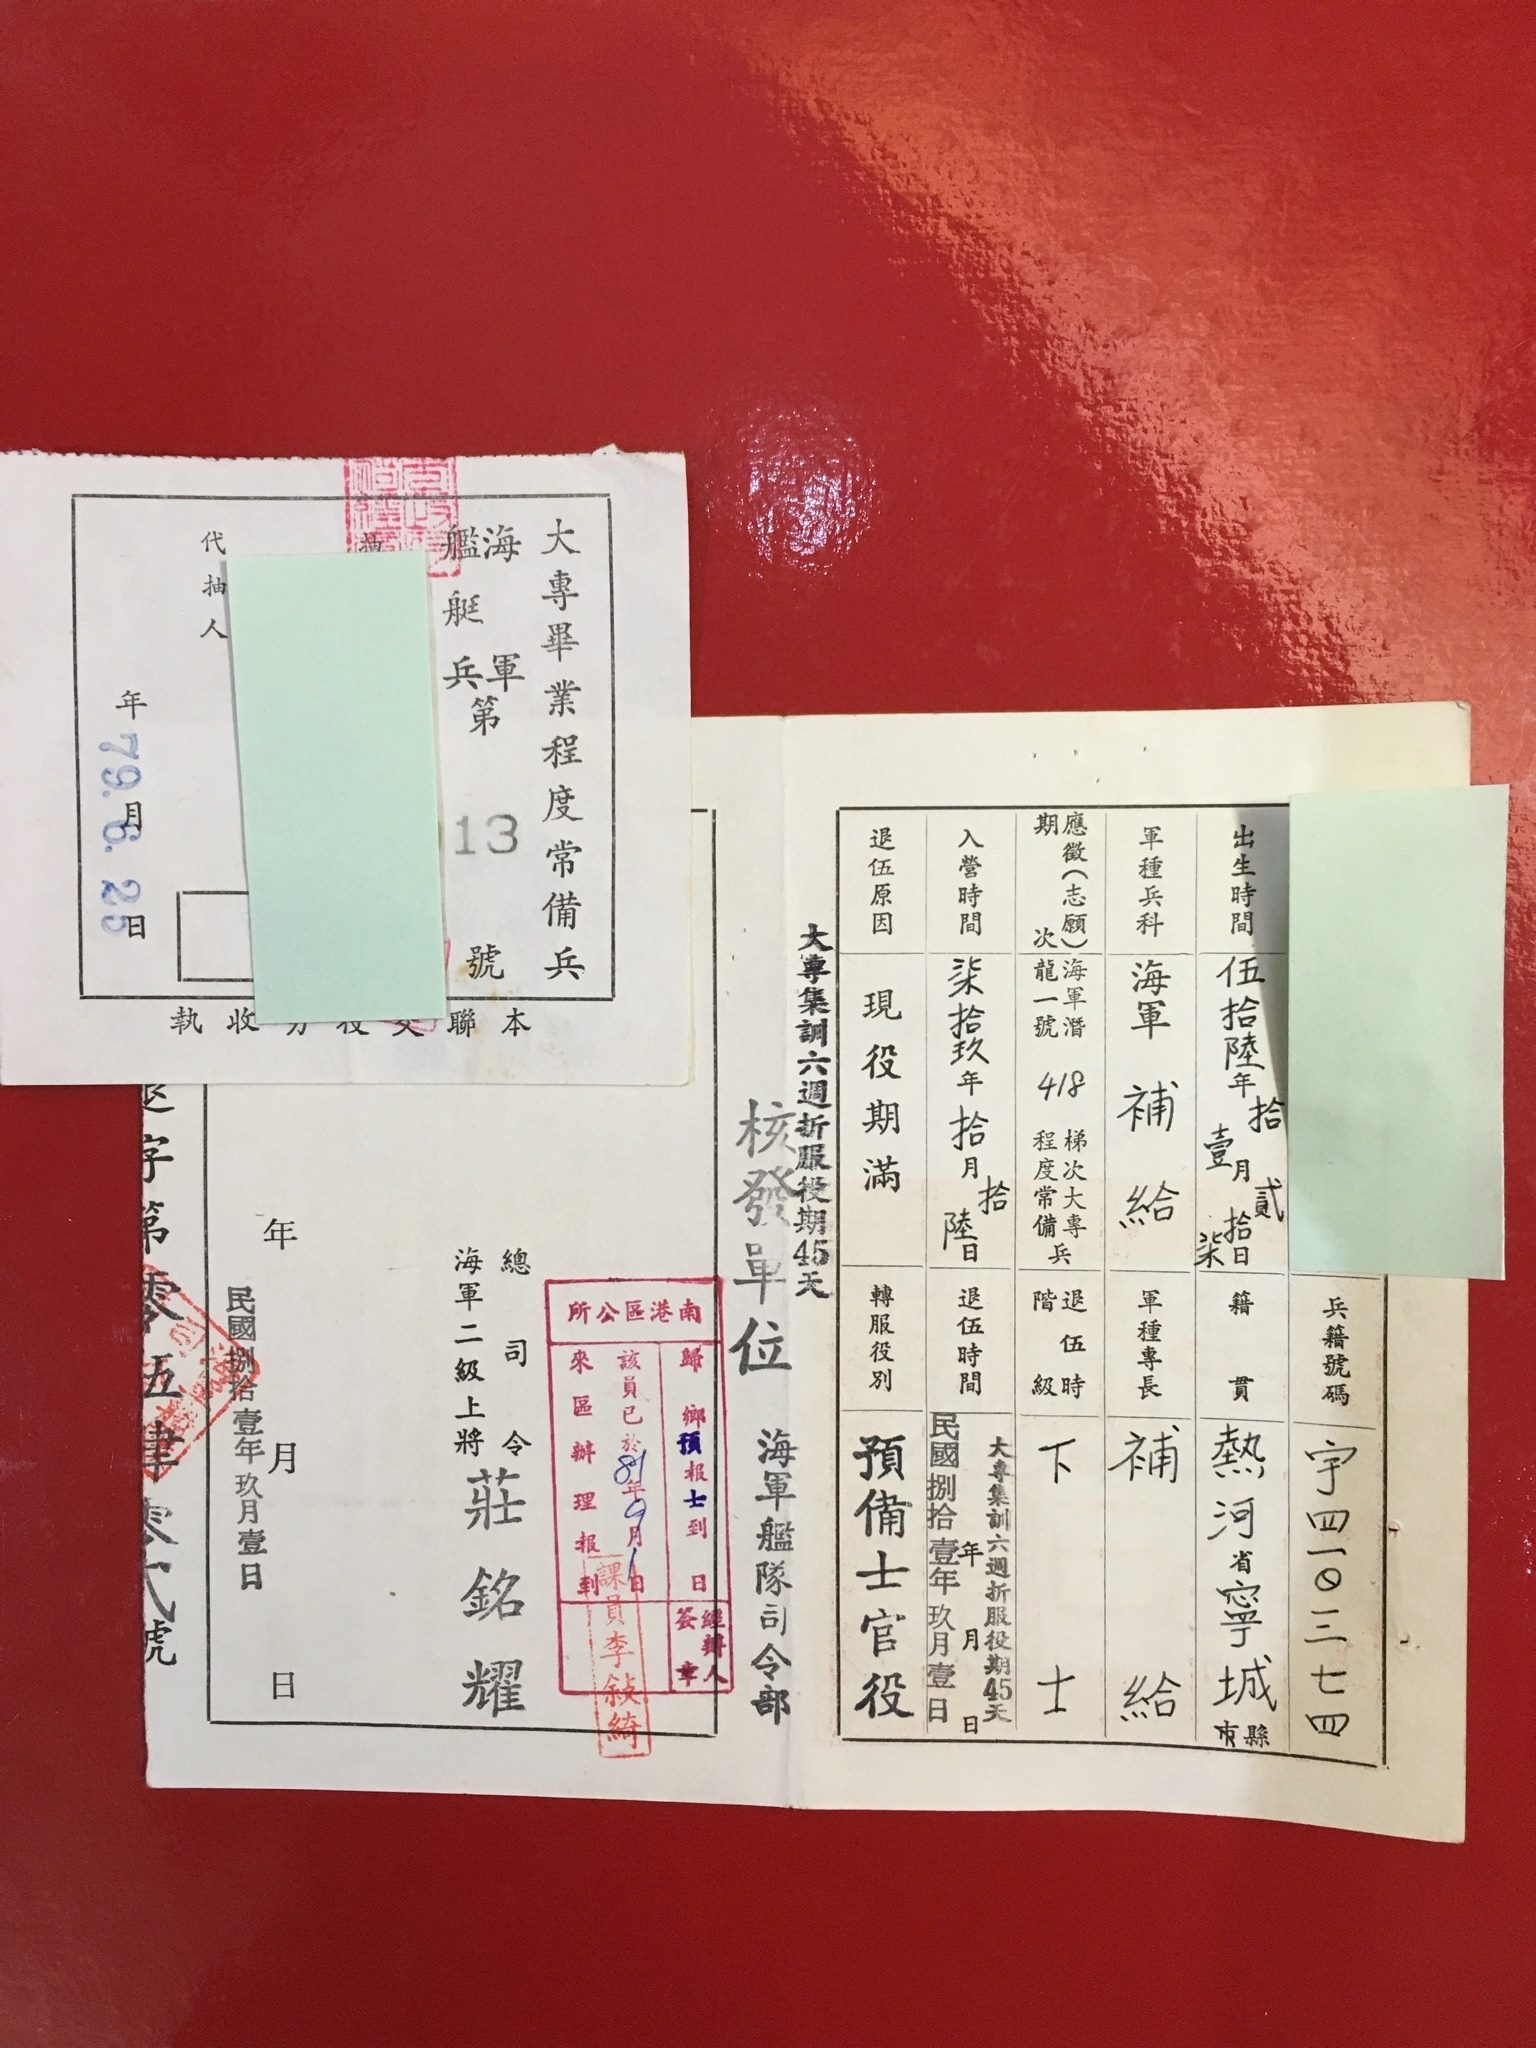 大專畢業程度常備兵
海軍
艦艇兵
第 13 號
代抽人
年月日
79.6.25
兵籍號碼
宇四一0三七四
出生時間
伍拾陸年拾壹月貳拾柒日
籍貫
熱河省寧城縣市
軍種兵科
海軍補給
軍種專長
補給
應徵(志願)期次
海軍潛龍一號 418 梯次大專程度常備兵
退伍時階級
下士
入營時間
柒拾玖年拾月拾陸日
退伍時間
大專集訓六週折服役期45天
年月日
民國捌拾壹年玖月壹日
退伍原因
現役期滿
轉服役別
預備士官役
大專集訓六週折服役期45天
核發單位
海軍艦隊司令部
南港區公所
歸鄉預報士到日
該員已於81年9月1日
來區辦理報到
經辦人簽章
課員李敍綺
總司令
海軍二級上將
莊銘耀
年月日
民國捌拾壹年玖月壹日
字第零伍肆零貳號